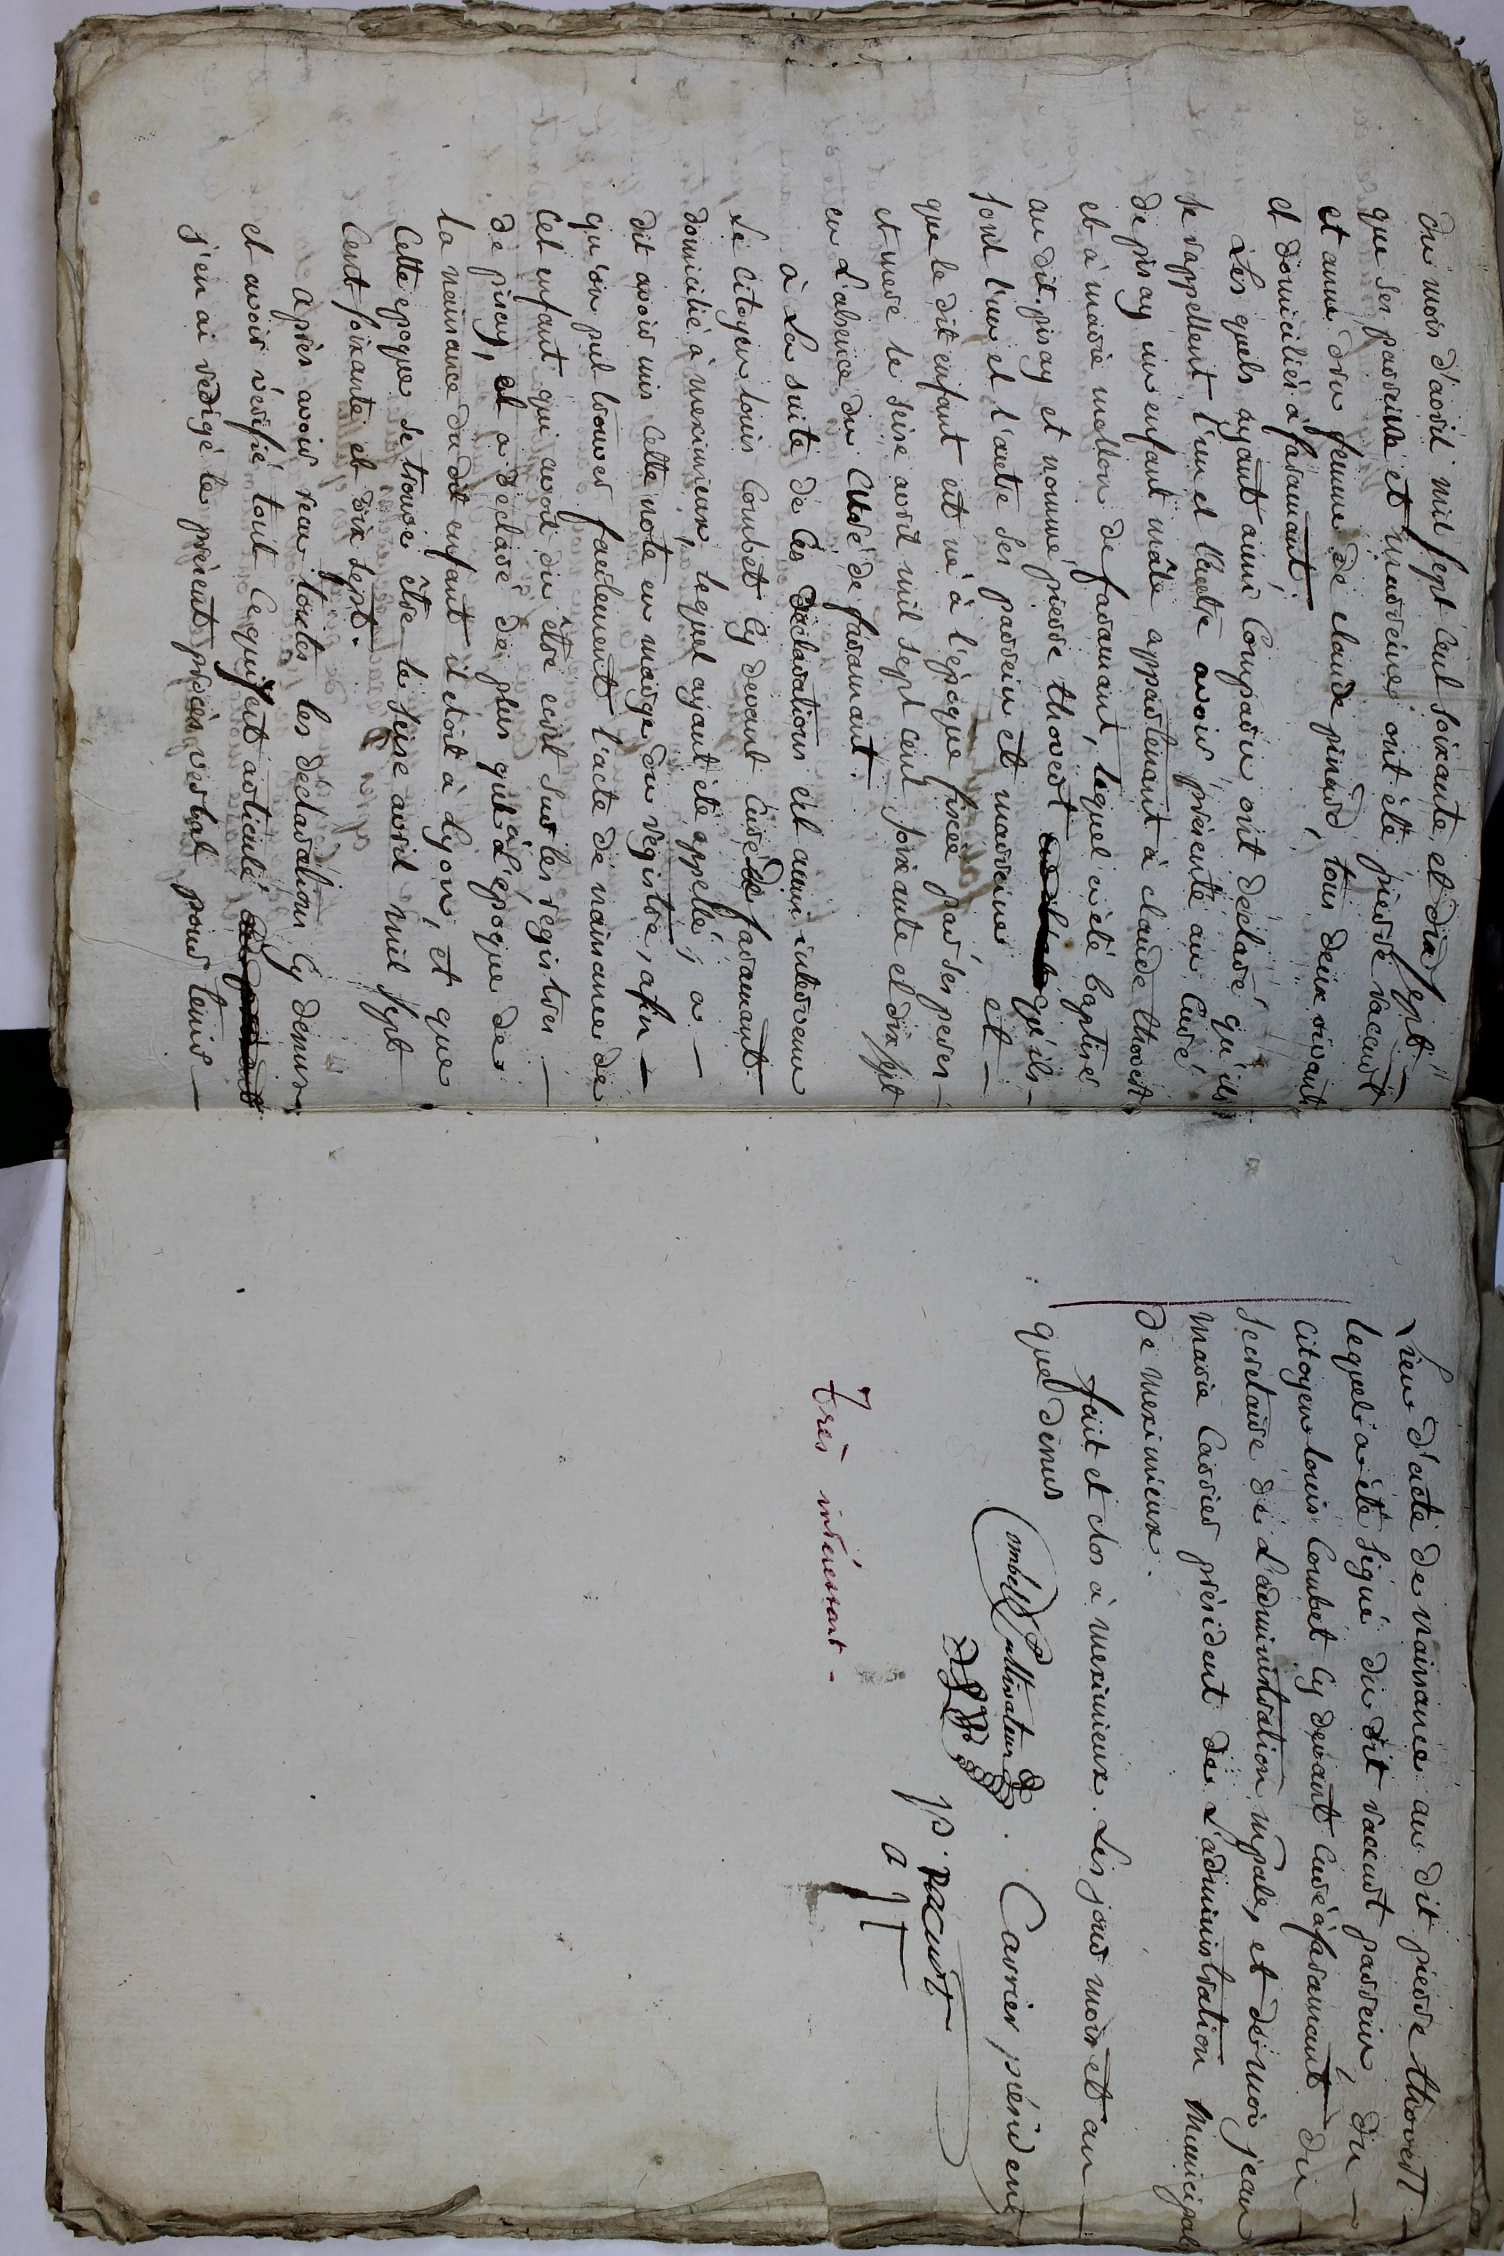 du mois d'avril mil sept cent soixante et dix sept
que ses parrain et marreine ont été pierre vacurt
et anne dru femme de claude pinard, tous deux vivants
et domiciliés à faramant.
Les quels ayant aussi comparu ont déclaré qu'ils
se rappellent l'un et l'autre avoir présenté au curé
de pisay un enfant mâle appartenant à claude thovert
et à marie mellon de faramant, lequel a été baptisé
au dit pisay et nommé pierre thovert qu'ils
sont l'un et l'autre ses parrein et marreine et
que le dit enfant est né à l'époque fixée par ses peres
et mere le seise avril mil sept cent soixante et dix sept
en l'absence du curé de faramant.
à la suite de ces déclarations est aussi intervenu
Le citoyen louis Combet cy devant curé de faramant
domicilié à meximieux, lequel ayant été appellé, a
dit avoir mis cette note en marge du registre, afin
qu'on put trouver facilement l'acte de naissance de
cet enfant qui avoit du être ecrit sur les registres
de pisay, et a déclaré de plus qu'à L'époque de
la naissance du dit enfant il etoit à Lyon, et que
cette epoque se trouve être le seise avril mil sept
cent soixante et dix sept.
après avoir reçu toutes les declarations cy dessus
et avoir vérifié tout ce qui est articulé
j'en ai redigé le présent procès verbal pour tenir
Lieu d'acte de naissance au dit pierre thovert
lequel a été signé du dit vacurt parrein, du
citoyen louis Combet cy devant curé à faramant du
secretaire de L'administration mpale, et de moi jean
marie Carrier président de L'administration municipale
de meximieux.
fait et clos à meximieux. Les jour mois et an
que dessus
Combet Cultivateur. Carrier président
p. vacurt
Très intéressant.